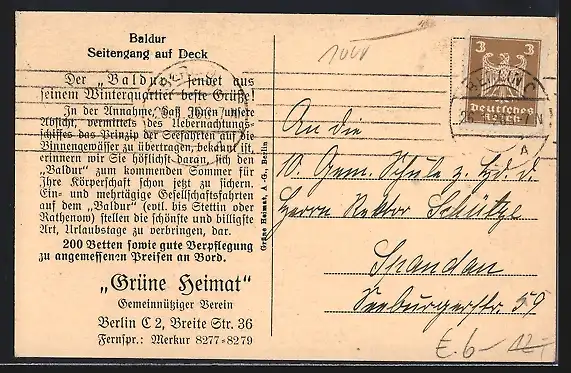 Baldur
Seitengang auf Deck
Der „Baldur“ sendet aus
seinem Winterquartier beste Grüße!
In der Annahme, daß Ihnen unsere
Absicht, vermittels des Uebernachtungs-
schiffes das Prinzip der Seefahrten auf die
Binnengewässer zu übertragen, bekannt ist,
erinnern wir Sie höflichst daran, sich den
„Baldur“ zum kommenden Sommer für
Ihre Körperschaft schon jetzt zu sichern.
Ein- und mehrtägige Gesellschaftsfahrten
auf dem „Baldur“ (evtl. bis Stettin oder
Rathenow) stellen die schönste und billigste
Art, Urlaubstage zu verbringen, dar.
200 Betten sowie gute Verpflegung
zu angemessenen Preisen an Bord.
„Grüne Heimat“
Gemeinnütziger Verein
Berlin C 2, Breite Str. 36
Fernspr.: Merkur 8277-8279
Grüne Heimat, A.-G., Berlin
3 3
Deutsches
Reich
BERLIN C
A
An die
10. Gem. Schule z. Hd. d.
Herrn Rektor Schütze
Spandau
Seeburgerstr. 59